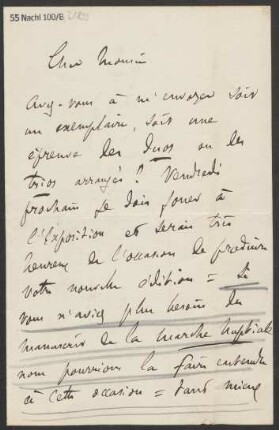 55 Nachl 100/B
Cher Monsieur
Avez-vous à m'envoyer soit
un exemplaire, soit une
épreuve des duos ou des
trios arrangés ? Vendredi
prochain je dois jouer à
l'Exposition et serais très
heureux de l'occasion de produire
votre nouvelle édition = Si
vous n'aviez plus besoin du
manuscrit de la marche nuptiale
nous pourrions la faire entendre
à cette occasion = tant mieux